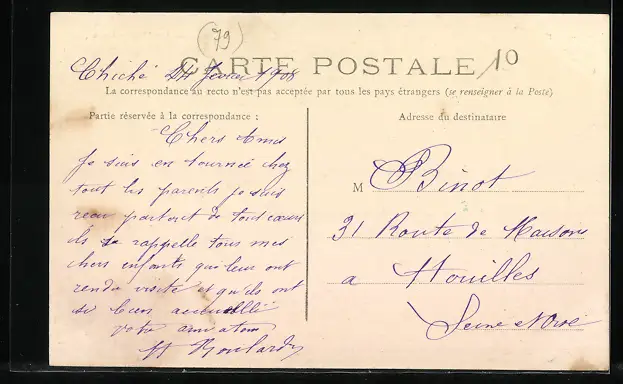 (79)
CARTE POSTALE
10
Chiché 24 février 1908
La correspondance au recto n'est pas acceptée par tous les pays étrangers (se renseigner à la Poste)
Partie réservée à la correspondance :
Adresse du destinataire
Chers Amis
Je suis en tournée chez
tout les parents je suis
recu partout de tout cœur
ils se rappelle tous mes
chers enfants qui leur ont
rendu visite et qu'ils ont
si bien accueilli
votre ami a tous
M Binot
31 Route de Maisons
a Houilles
Seine et Oise